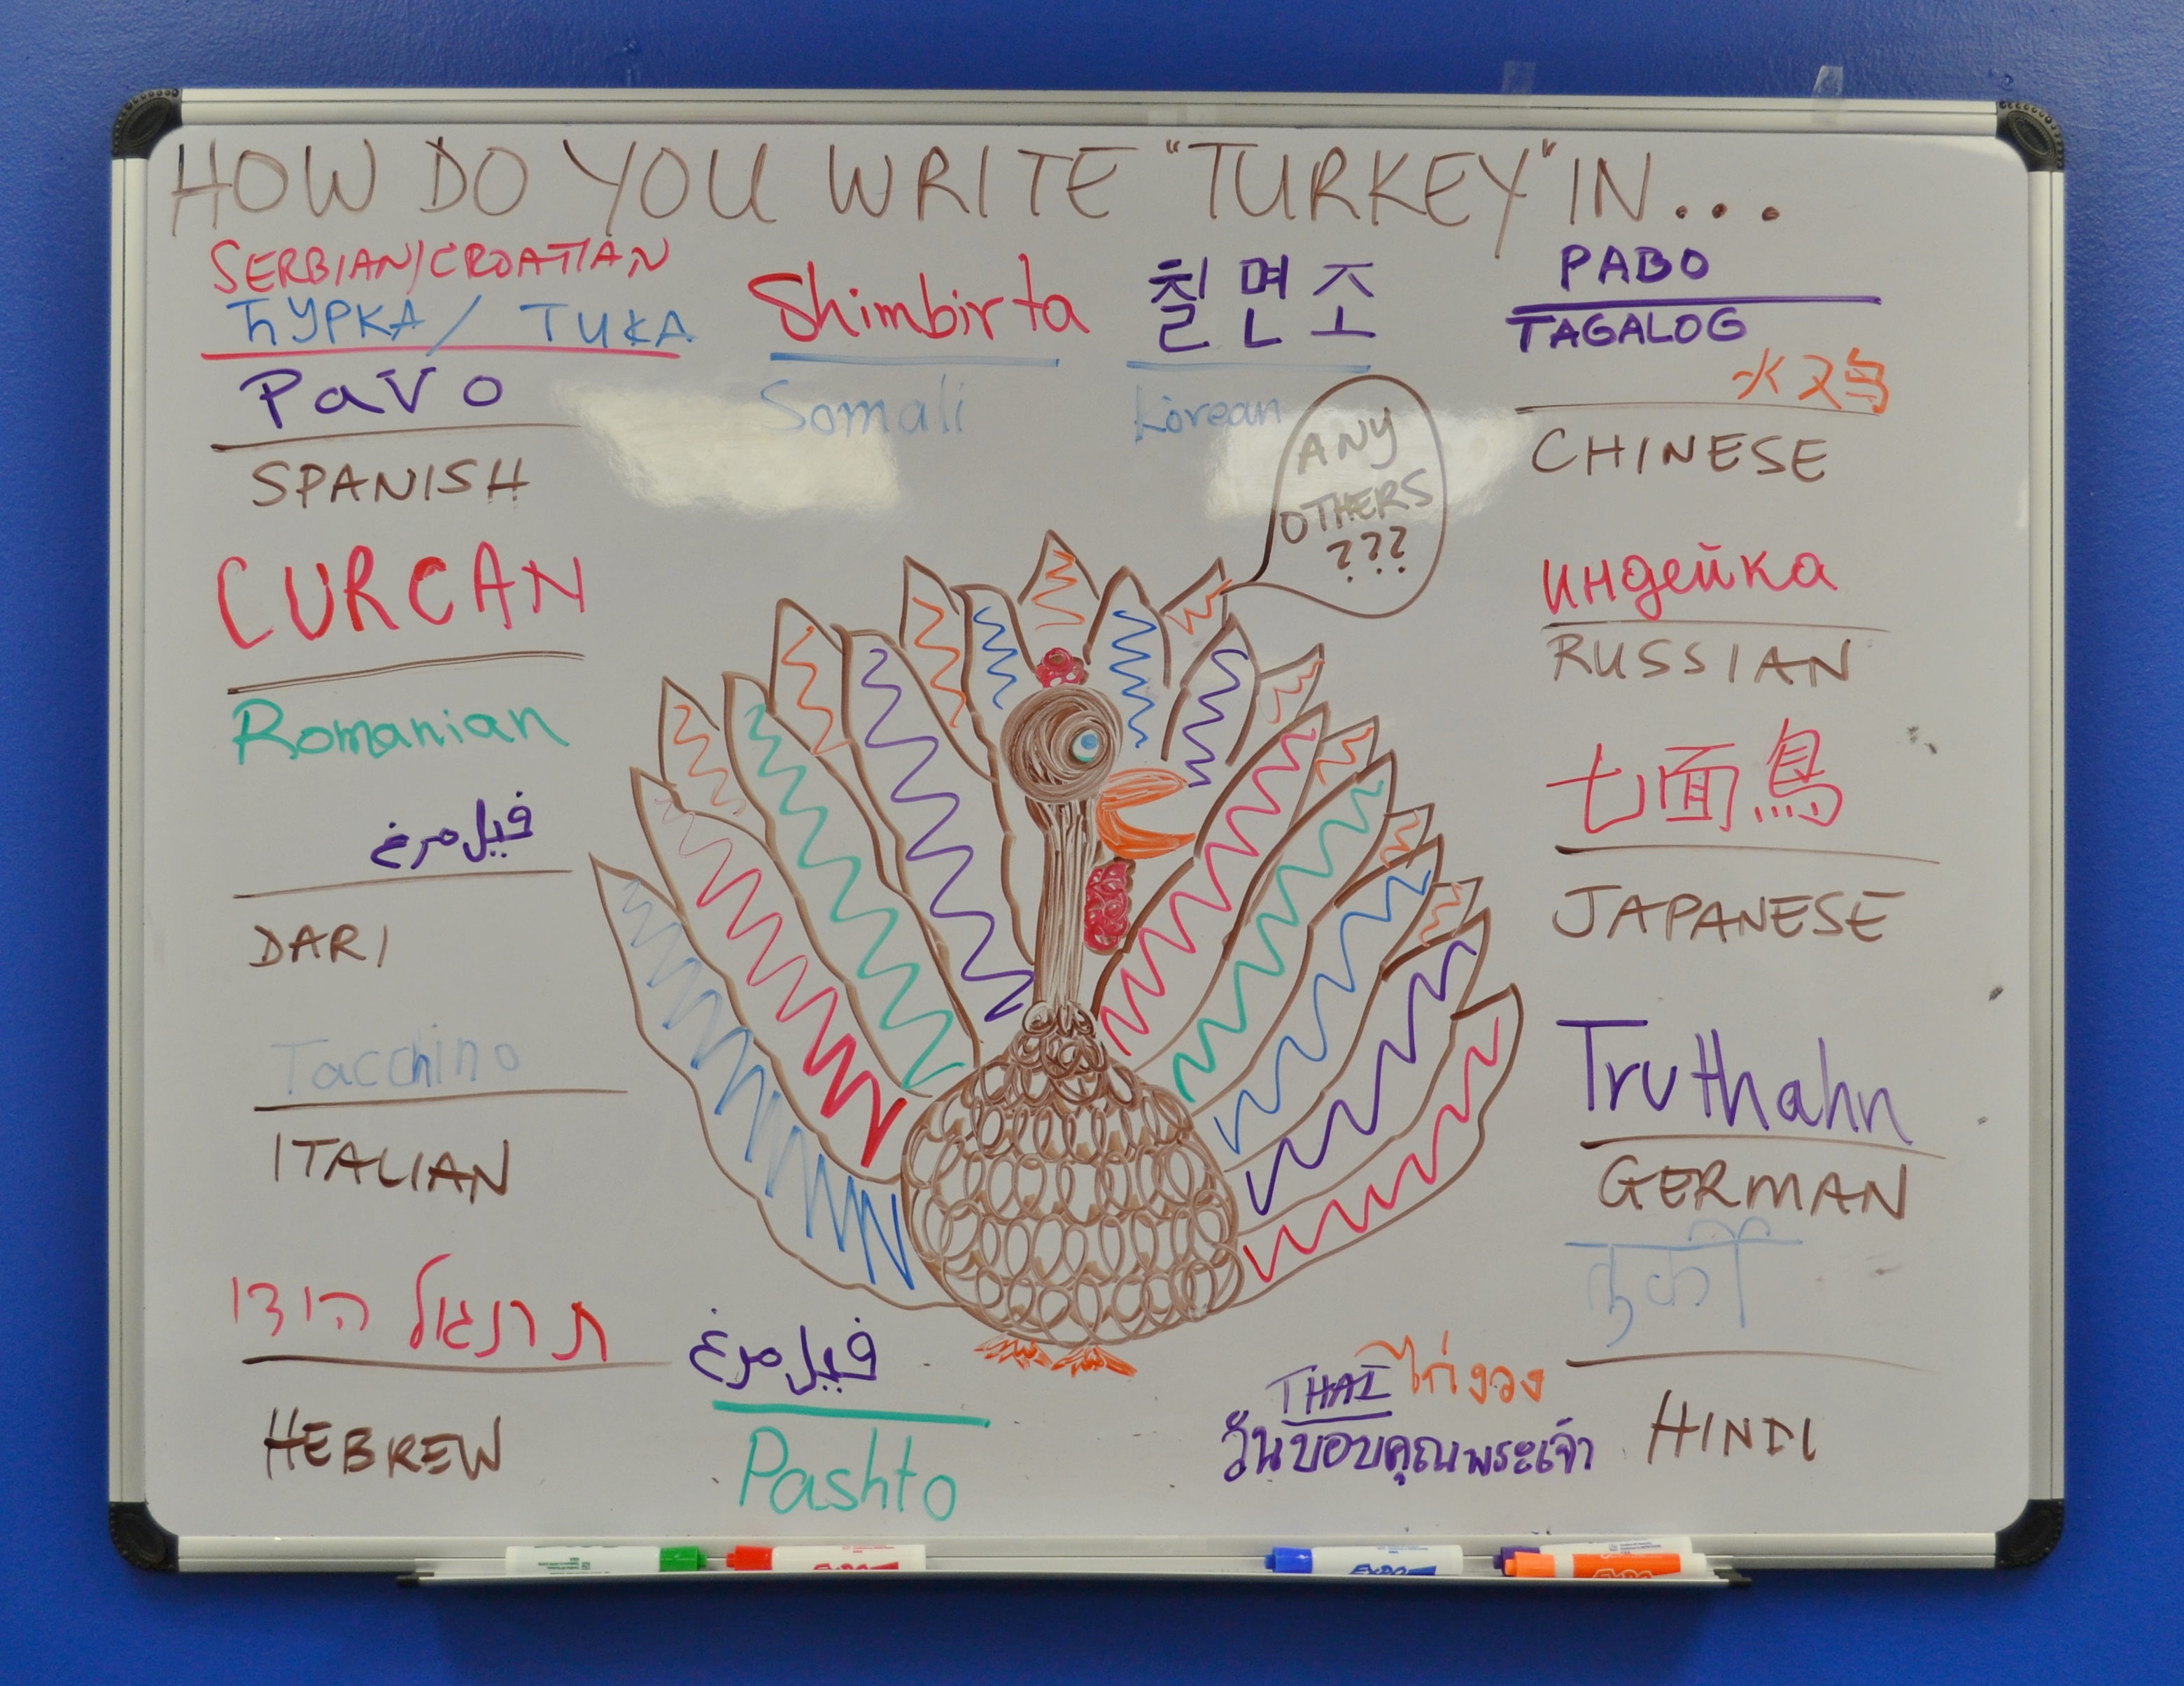 HOW DO YOU WRITE "TURKEY" IN...
SERBIAN/CROATIAN
ЋУРКА / TUKA
PaVo
SPANISH
CURCAN
Romanian
فیل مرغ
DARI
Tacchino
ITALIAN
תרנגול הודו
HEBREW
Shimbirta
Somali
칠면조
Korean
ANY
OTHERS
???
فیل مرغ
Pashto
THAI ไก่งวง
วันขอบคุณพระเจ้า
PABO
TAGALOG
火又鸟
CHINESE
индейка
RUSSIAN
七面鳥
JAPANESE
Truthahn
GERMAN
तुर्की
HINDI
EXPO